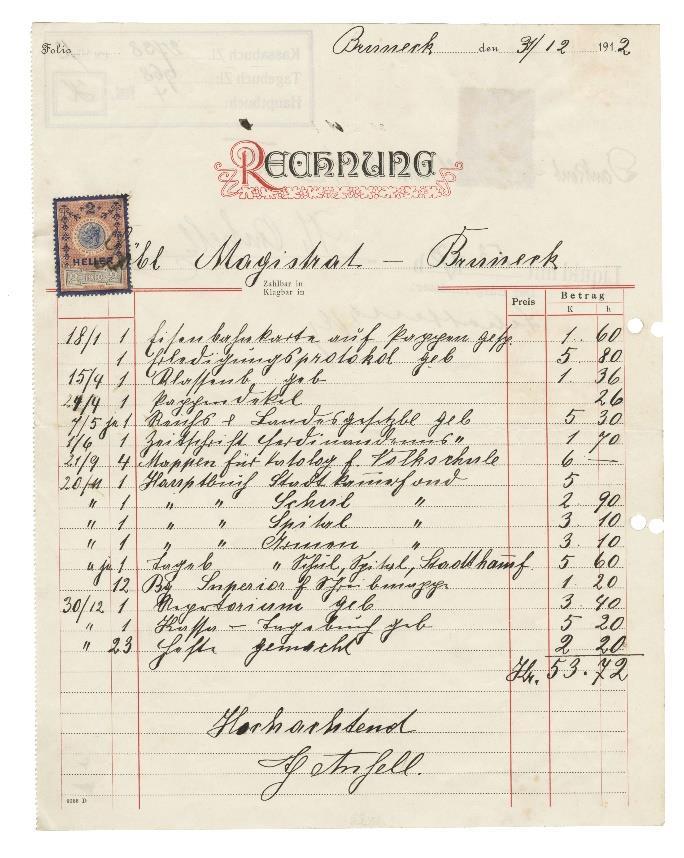 Folio
Bruneck den 31/12 1912
RECHNUNG
2
HELLER
löbl Magistrat – Bruneck
Zahlbar in
Klagbar in
Preis Betrag
K h
18/1 1 Eisenbahnkarte auf Pappen gesp. 1. 60
1 Erledigungsprotokol geb 5 80
15/4 1 Klassenb geb 1 36
24/4 1 Pappendekel 26
7/5 je 1 Reichs & Landesgesetzbl geb 5 30
1/6 1 Zeitschrift Ferdinandeums" 1 70
21/9 4 Mappen für Katalog f. Volkschule 6 —
20/11 1 Hauptbuch Stadtkammerfond 5
" 1 " " Schul " 2 90
" 1 " " Spital " 3 10
" 1 " " Armen " 3. 10
" je 1 Tageb " Schul, Spital, Stadtkam̄f. 5 60
12 Bg Superior f Schreibmappe 1. 20
30/12 1 Repertorium geb 3. 40
" 1 Kassa – Tagebuch geb 5 20
" 23 Hefte gemacht 2 20
Kr. 53. 72
Hochachtend